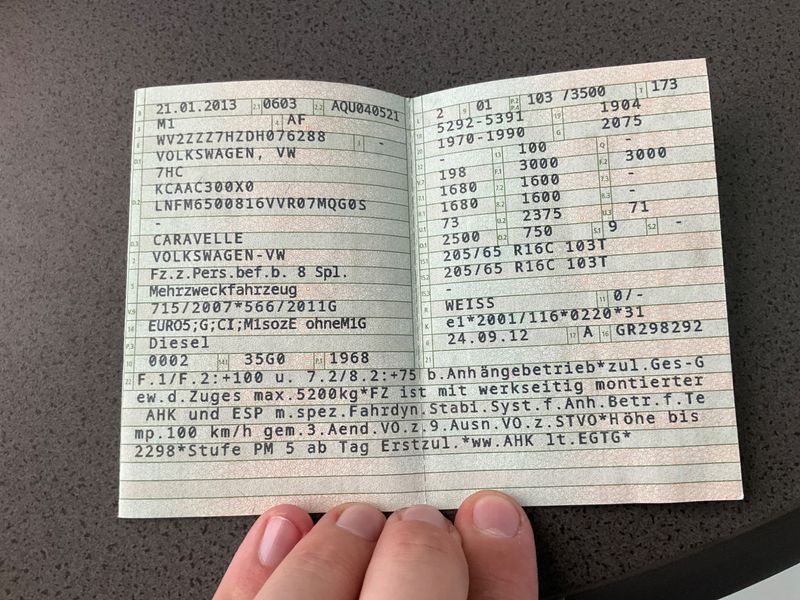 21.01.2013 0603 AQU040521
M1 AF
WV2ZZZ7HZDH076288 -
VOLKSWAGEN, VW
7HC
KCAAC300X0
LNFM6500816VVR07MQG0S
-
CARAVELLE
VOLKSWAGEN-VW
Fz.z.Pers.bef.b. 8 Spl.
Mehrzweckfahrzeug
715/2007*566/2011G
EURO5;G;CI;M1sozE ohneM1G
Diesel
0002 35G0 1968
2 01 103 /3500 173
5292-5391 1904
1970-1990 2075
- 100 -
198 3000 3000
1680 1600 -
1680 1600 -
73 2375 71
2500 750 9 -
205/65 R16C 103T
205/65 R16C 103T
-
WEISS 0/-
e1*2001/116*0220*31
24.09.12 A GR298292
F.1/F.2:+100 u. 7.2/8.2:+75 b.Anhängebetrieb*zul.Ges-G
ew.d.Zuges max.5200kg*FZ ist mit werkseitig montierter
AHK und ESP m.spez.Fahrdyn.Stabi.Syst.f.Anh.Betr.f.Te
mp.100 km/h gem.3.Aend.VO.z.9.Ausn.VO.z.STVO*Höhe bis
2298*Stufe PM 5 ab Tag Erstzul.*ww.AHK lt.EGTG*